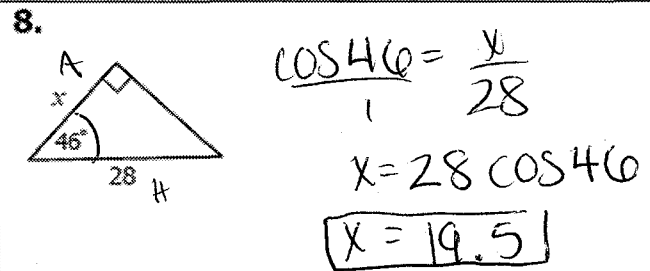 8.
A
x
46°
28
H
cos46 = x/28
1
x = 28 cos46
x = 19.5